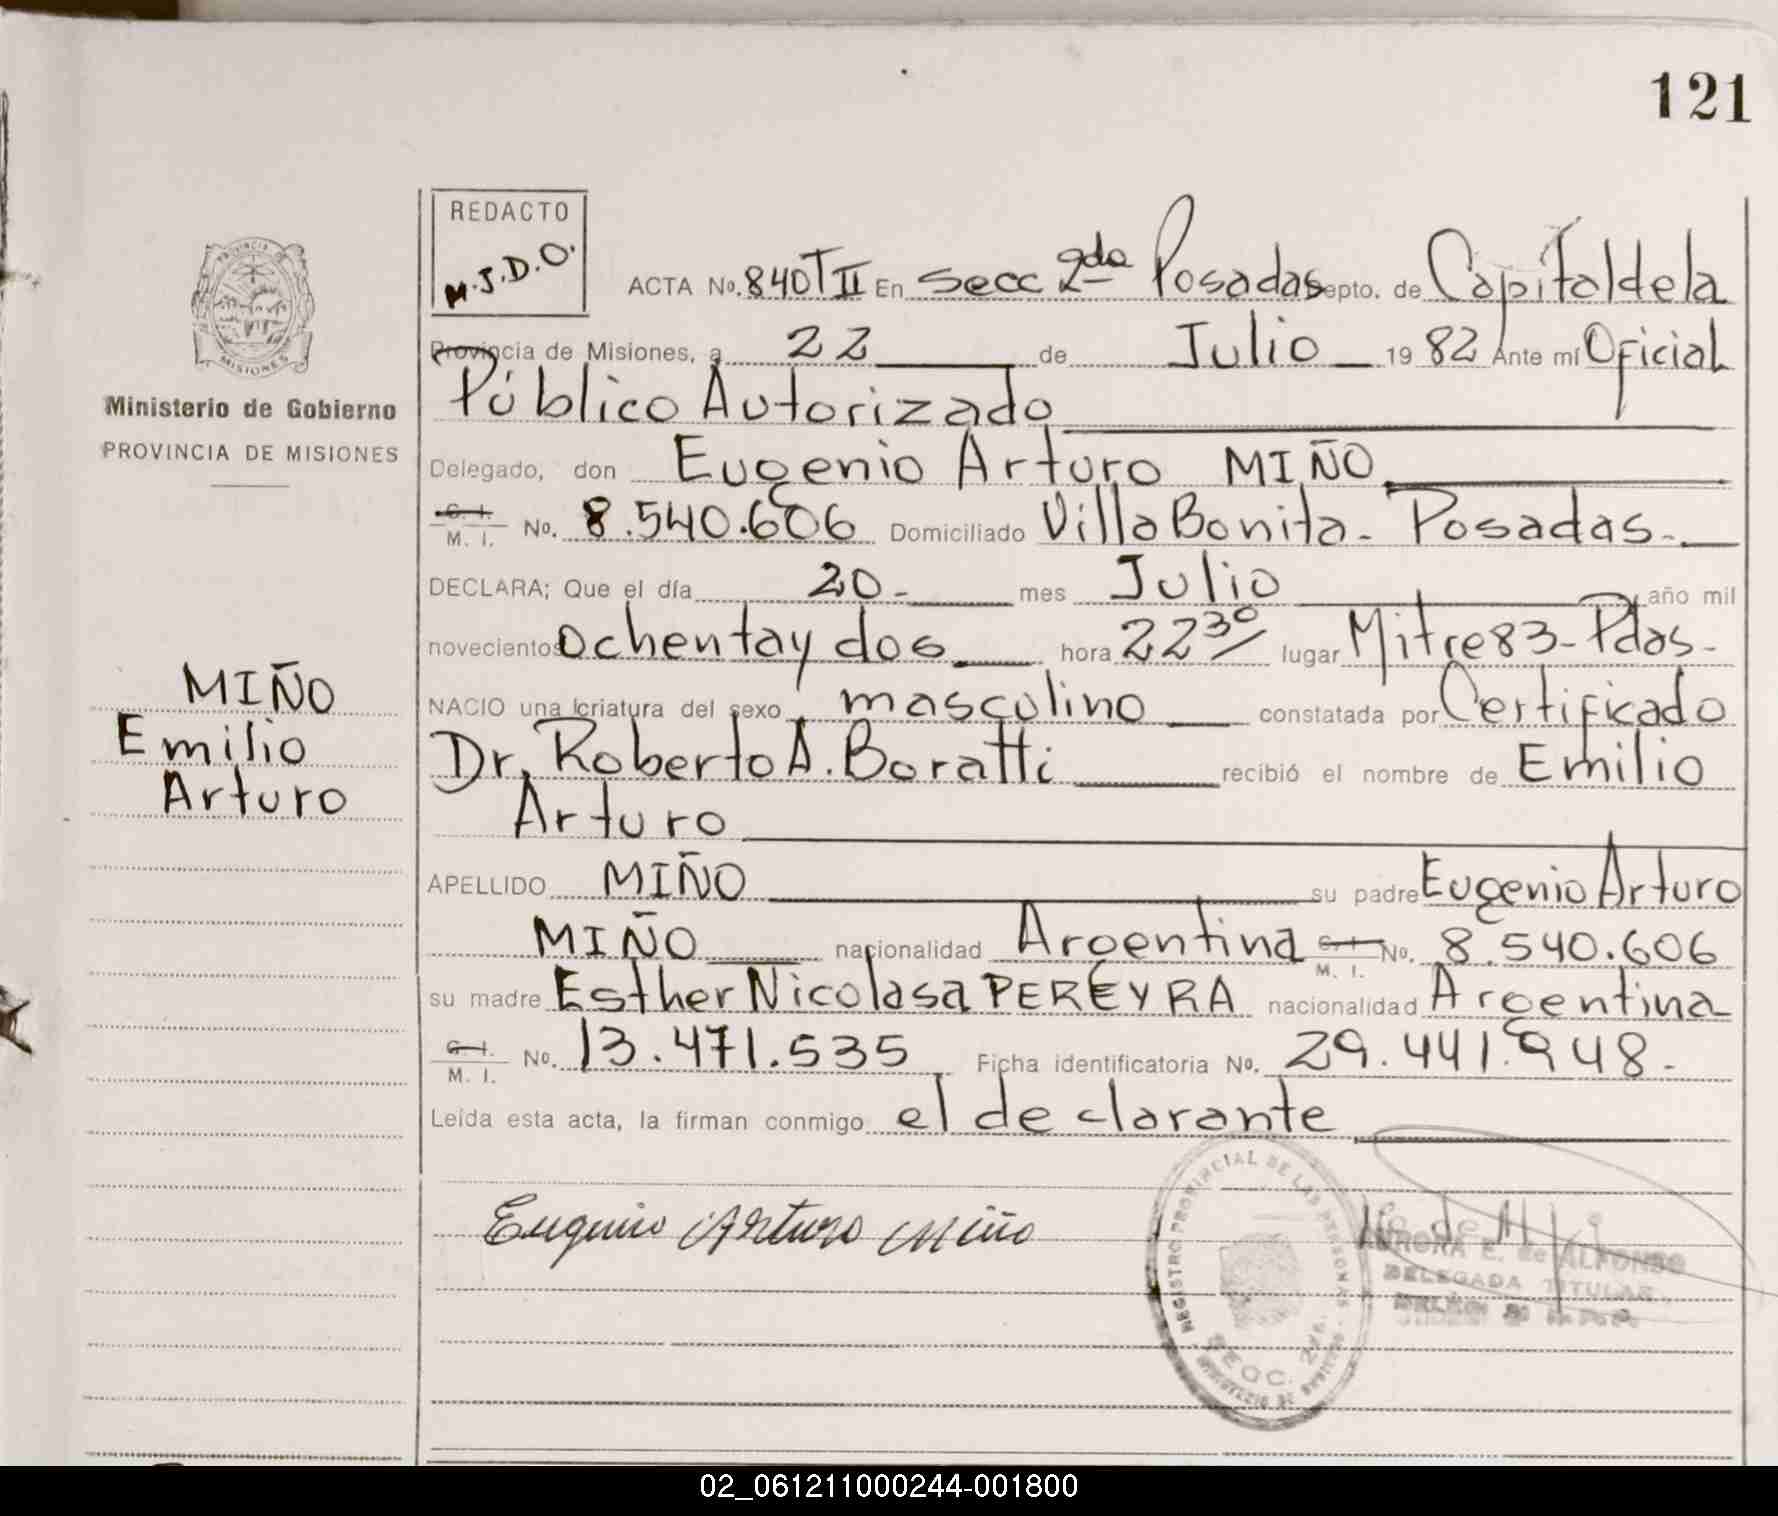 121
REDACTO
M.J.D.O.
ACTA No. 840 T II En Secc 2da Posadas epto. de Capital de la
Provincia de Misiones, a 22 de Julio 19 82 Ante mí Oficial
Público Autorizado
Delegado, don Eugenio Arturo MIÑO
C. I. M. I. No. 8.540.606 Domiciliado Villa Bonita - Posadas.-
DECLARA; Que el día 20.- mes Julio año mil
novecientos ochenta y dos hora 22 30 lugar Mitre 83 - Pdas.-
NACIO una criatura del sexo masculino constatada por Certificado
Dr. Roberto A. Boratti recibió el nombre de Emilio
Arturo
APELLIDO MIÑO su padre Eugenio Arturo
MIÑO nacionalidad Argentina C. I. M. I. No. 8.540.606
su madre Esther Nicolasa PEREYRA nacionalidad Argentina
C. I. M. I. No. 13.471.535 Ficha identificatoria No. 29.441.948.-
Leída esta acta, la firman conmigo el declarante
Eugenio Arturo Miño
PROVINCIA
MISIONES
Ministerio de Gobierno
PROVINCIA DE MISIONES
MIÑO
Emilio
Arturo
REGISTRO PROVINCIAL DE LAS PERSONAS
SECC. 2da.
AURORA E. de ALFONSO
DELEGADA TITULAR
02_061211000244-001800